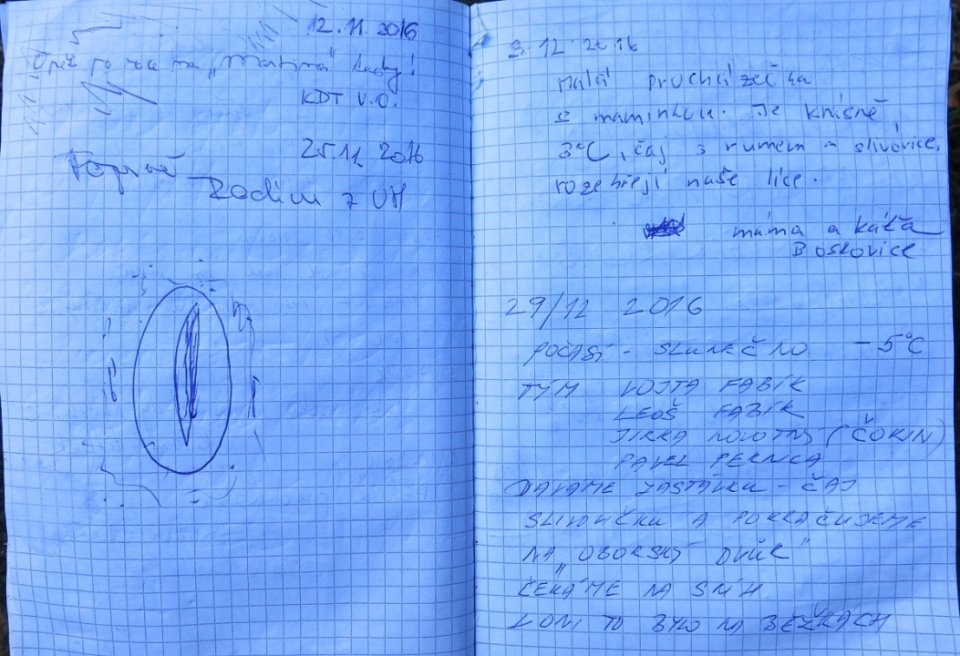 12.11.2016
Opět po roce na „Martina" hody!
KDT V.O.
25.11 2016
Radim z UH
3.12.2016
Malá procházečka
s maminkou. Je krásně,
3°C, čaj s rumem a slivovice,
rozehřejí naše líce.
máma a Káťa
Boskovice
29/12 2016
POČASÍ - SLUNEČNO -5°C
TÝM VOJTA FABÍK
LEOŠ FABÍK
JIRKA NOVOTNÝ (ČOKIN)
PAVEL PERNICA
DÁVÁME ZASTÁVKU - ČAJ
SLIVOVIČKU A POKRAČUJEME
NA „OBORSKÝ DVŮR"
ČEKÁME NA SNÍH
LONI TO BYLO NA BĚŽKÁCH